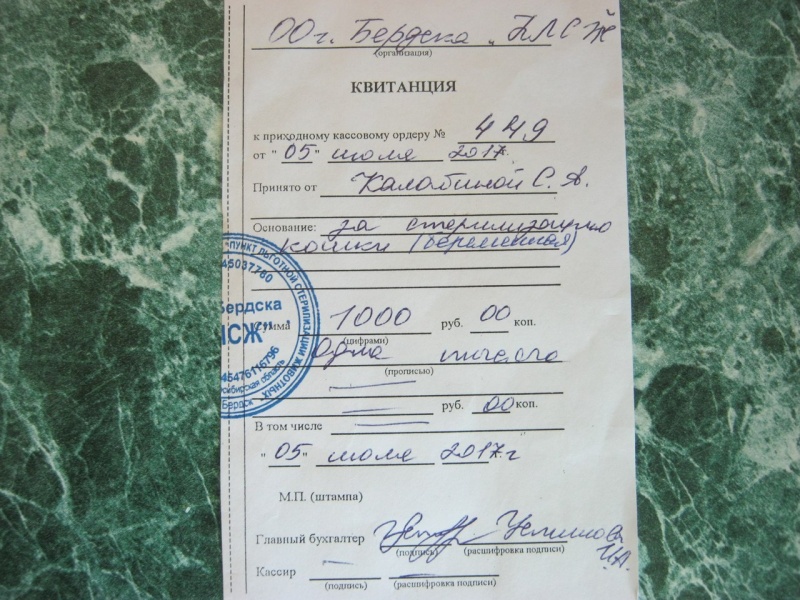 ОО г. Бердска "ПЛСЖ
(организация)
КВИТАНЦИЯ
к приходному кассовому ордеру № 449
от "05" июля 2017г.
Принято от Калабиной С. А.
Основание: за стерилизацию
кошки (беременная)
ПУНКТ ЛЬГОТНОЙ СТЕРИЛИЗАЦИИ ЖИВОТНЫХ
45037760
Бердска
ЛСЖ"
45476116796
Новосибирская область
г. Бердск
Сумма 1000 руб. 00 коп.
(цифрами)
Одна тысяча
(прописью)
руб. 00 коп.
В том числе
"05" июля 2017г
М.П. (штампа)
Главный бухгалтер
(подпись) (расшифровка подписи)
И.А.
Кассир
(подпись) (расшифровка подписи)